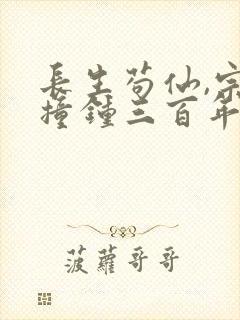 長生苟仙,宗
撞鐘三百年
菠蘿哥哥